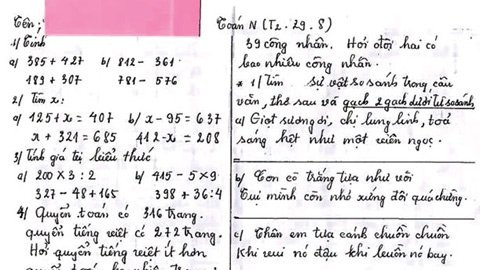 Tên:
Toán N (T2. 29. 8)
1/ Tính
a) 385 + 427 b) 812 - 361
189 + 307 781 - 576
2/ Tìm x:
a) 125 + x = 407 b) x - 95 = 637
x + 321 = 685 412 - x = 208
3/ Tính giá trị biểu thức
a) 200 x 3 : 2 b) 415 - 5 x 9
327 - 48 + 165 398 + 36 : 4
4/ Quyển toán có 316 trang.
quyển tiếng việt có 272 trang.
Hỏi quyển tiếng việt ít hơn
quyển toán
39 công nhân. Hỏi đội hai có
bao nhiêu công nhân.
* 1/ Tìm sự vật so sánh trong câu
văn, thơ sau và gạch 2 gạch dưới từ so sánh
a) Giọt sương ơi, chị lung linh, toả
sáng hệt như một viên ngọc.
b) Con có trắng tựa như vôi
Tụi mình còn nhỏ xứng đôi quá chừng.
c) Thân em tựa cánh chuồn chuồn
Khi vui nó đậu khi buồn nó bay.